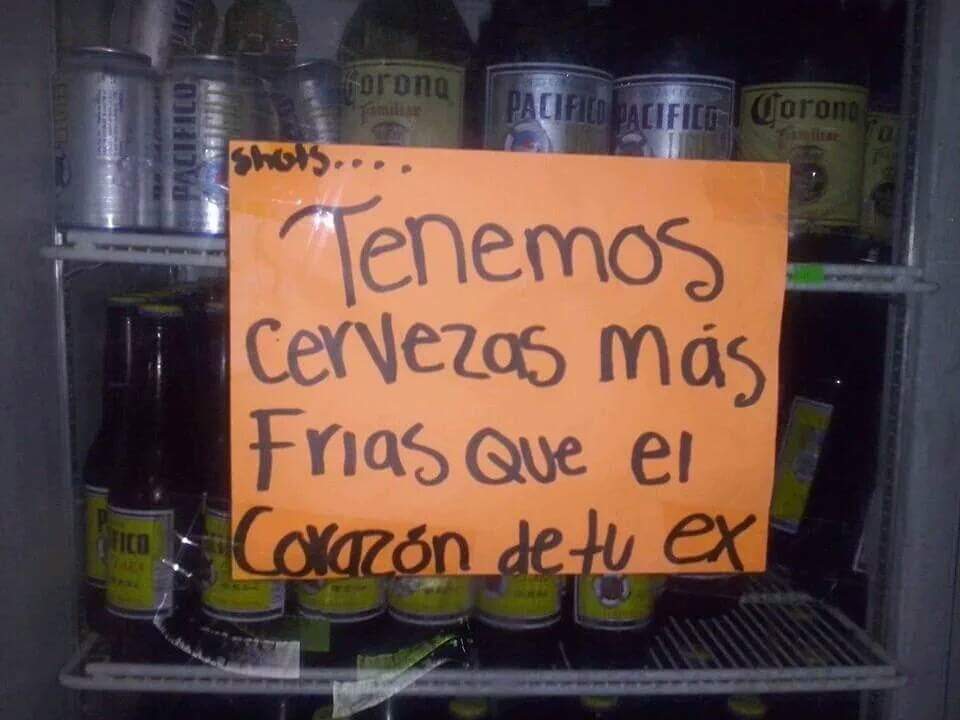 Corona
Familiar
PACIFICO
PACIFICO
PACIFICO
Corona
Familiar
shots....
Tenemos
cervezas más
Frias que el
Corazón de tu ex